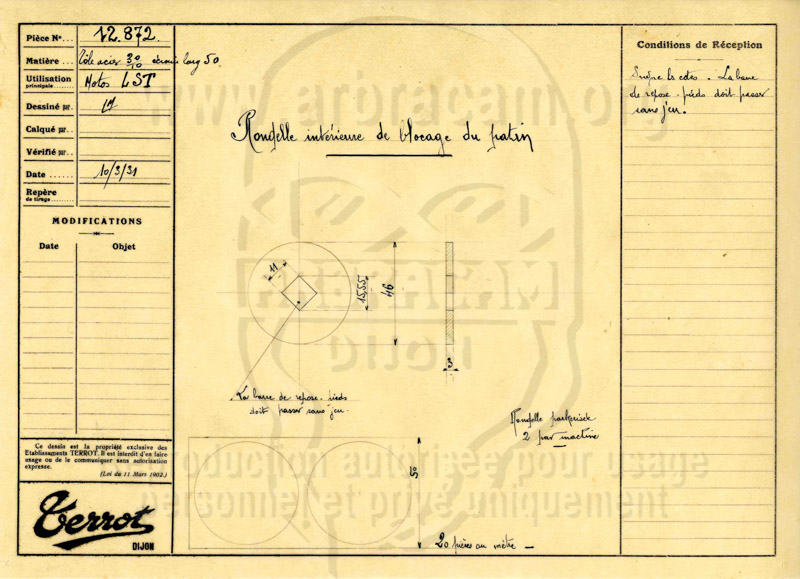 Pièce N°... 12.872.
Matière... Tôle acier 30/10 écrouie larg 50.
Utilisation principale...... Motos LST
Dessiné par.
Calqué par..
Vérifié par..
Date...... 10/3/31
Repère de tirage.........
MODIFICATIONS
Date Objet
Ce dessin est la propriété exclusive des
Etablissements TERROT. Il est interdit d'en faire
usage ou de le communiquer sans autorisation
expresse.
(Loi du 11 Mars 1902.)
Terrot
DIJON
Rondelle intérieure de blocage du patin
11
15,55
46
3
La barre de repose-pieds
doit passer sans jeu.
Rondelle parkerisée
2 par machine
50
20 pièces au mètre
Conditions de Réception
Suivre les cotes. La barre
de repose-pieds doit passer
sans jeu.
www.arbracam.org
ARBRACAM
DIJON
reproduction autorisée pour usage
personnel et privé uniquement